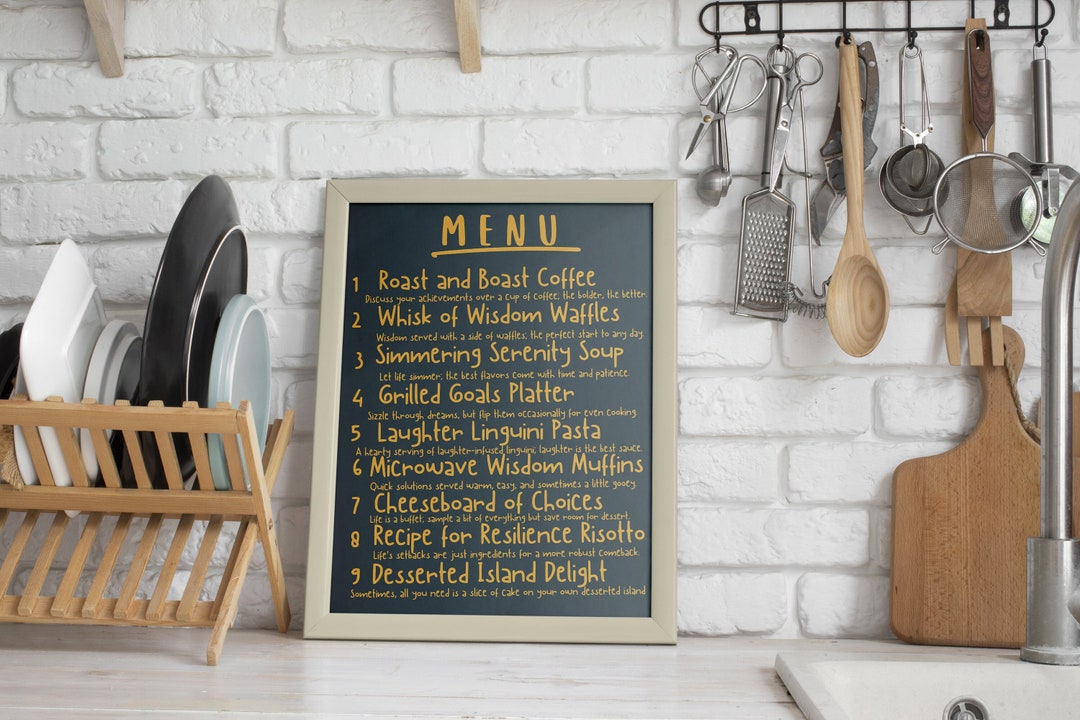 MENU
1 Roast and Boast Coffee
Discuss your achievements over a cup of coffee, the bolder, the better.
2 Whisk of Wisdom Waffles
Wisdom served with a side of waffles, the perfect start to any day.
3 Simmering Serenity Soup
Let life simmer; the best flavors come with time and patience.
4 Grilled Goals Platter
Sizzle through dreams, but flip them occasionally for even cooking.
5 Laughter Linguini Pasta
A hearty serving of laughter-infused linguini; laughter is the best sauce.
6 Microwave Wisdom Muffins
Quick solutions served warm, easy, and sometimes a little gooey.
7 Cheeseboard of Choices
Life is a buffet; sample a bit of everything but save room for dessert.
8 Recipe for Resilience Risotto
Life's setbacks are just ingredients for a more robust comeback.
9 Desserted Island Delight
Sometimes, all you need is a slice of cake on your own desserted island